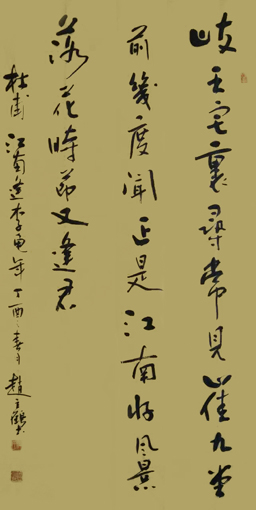 岐王宅裏尋常見崔九堂
前幾度聞正是江南好風景
落花時節又逢君
杜甫江南逢李龜年丁酉春月趙